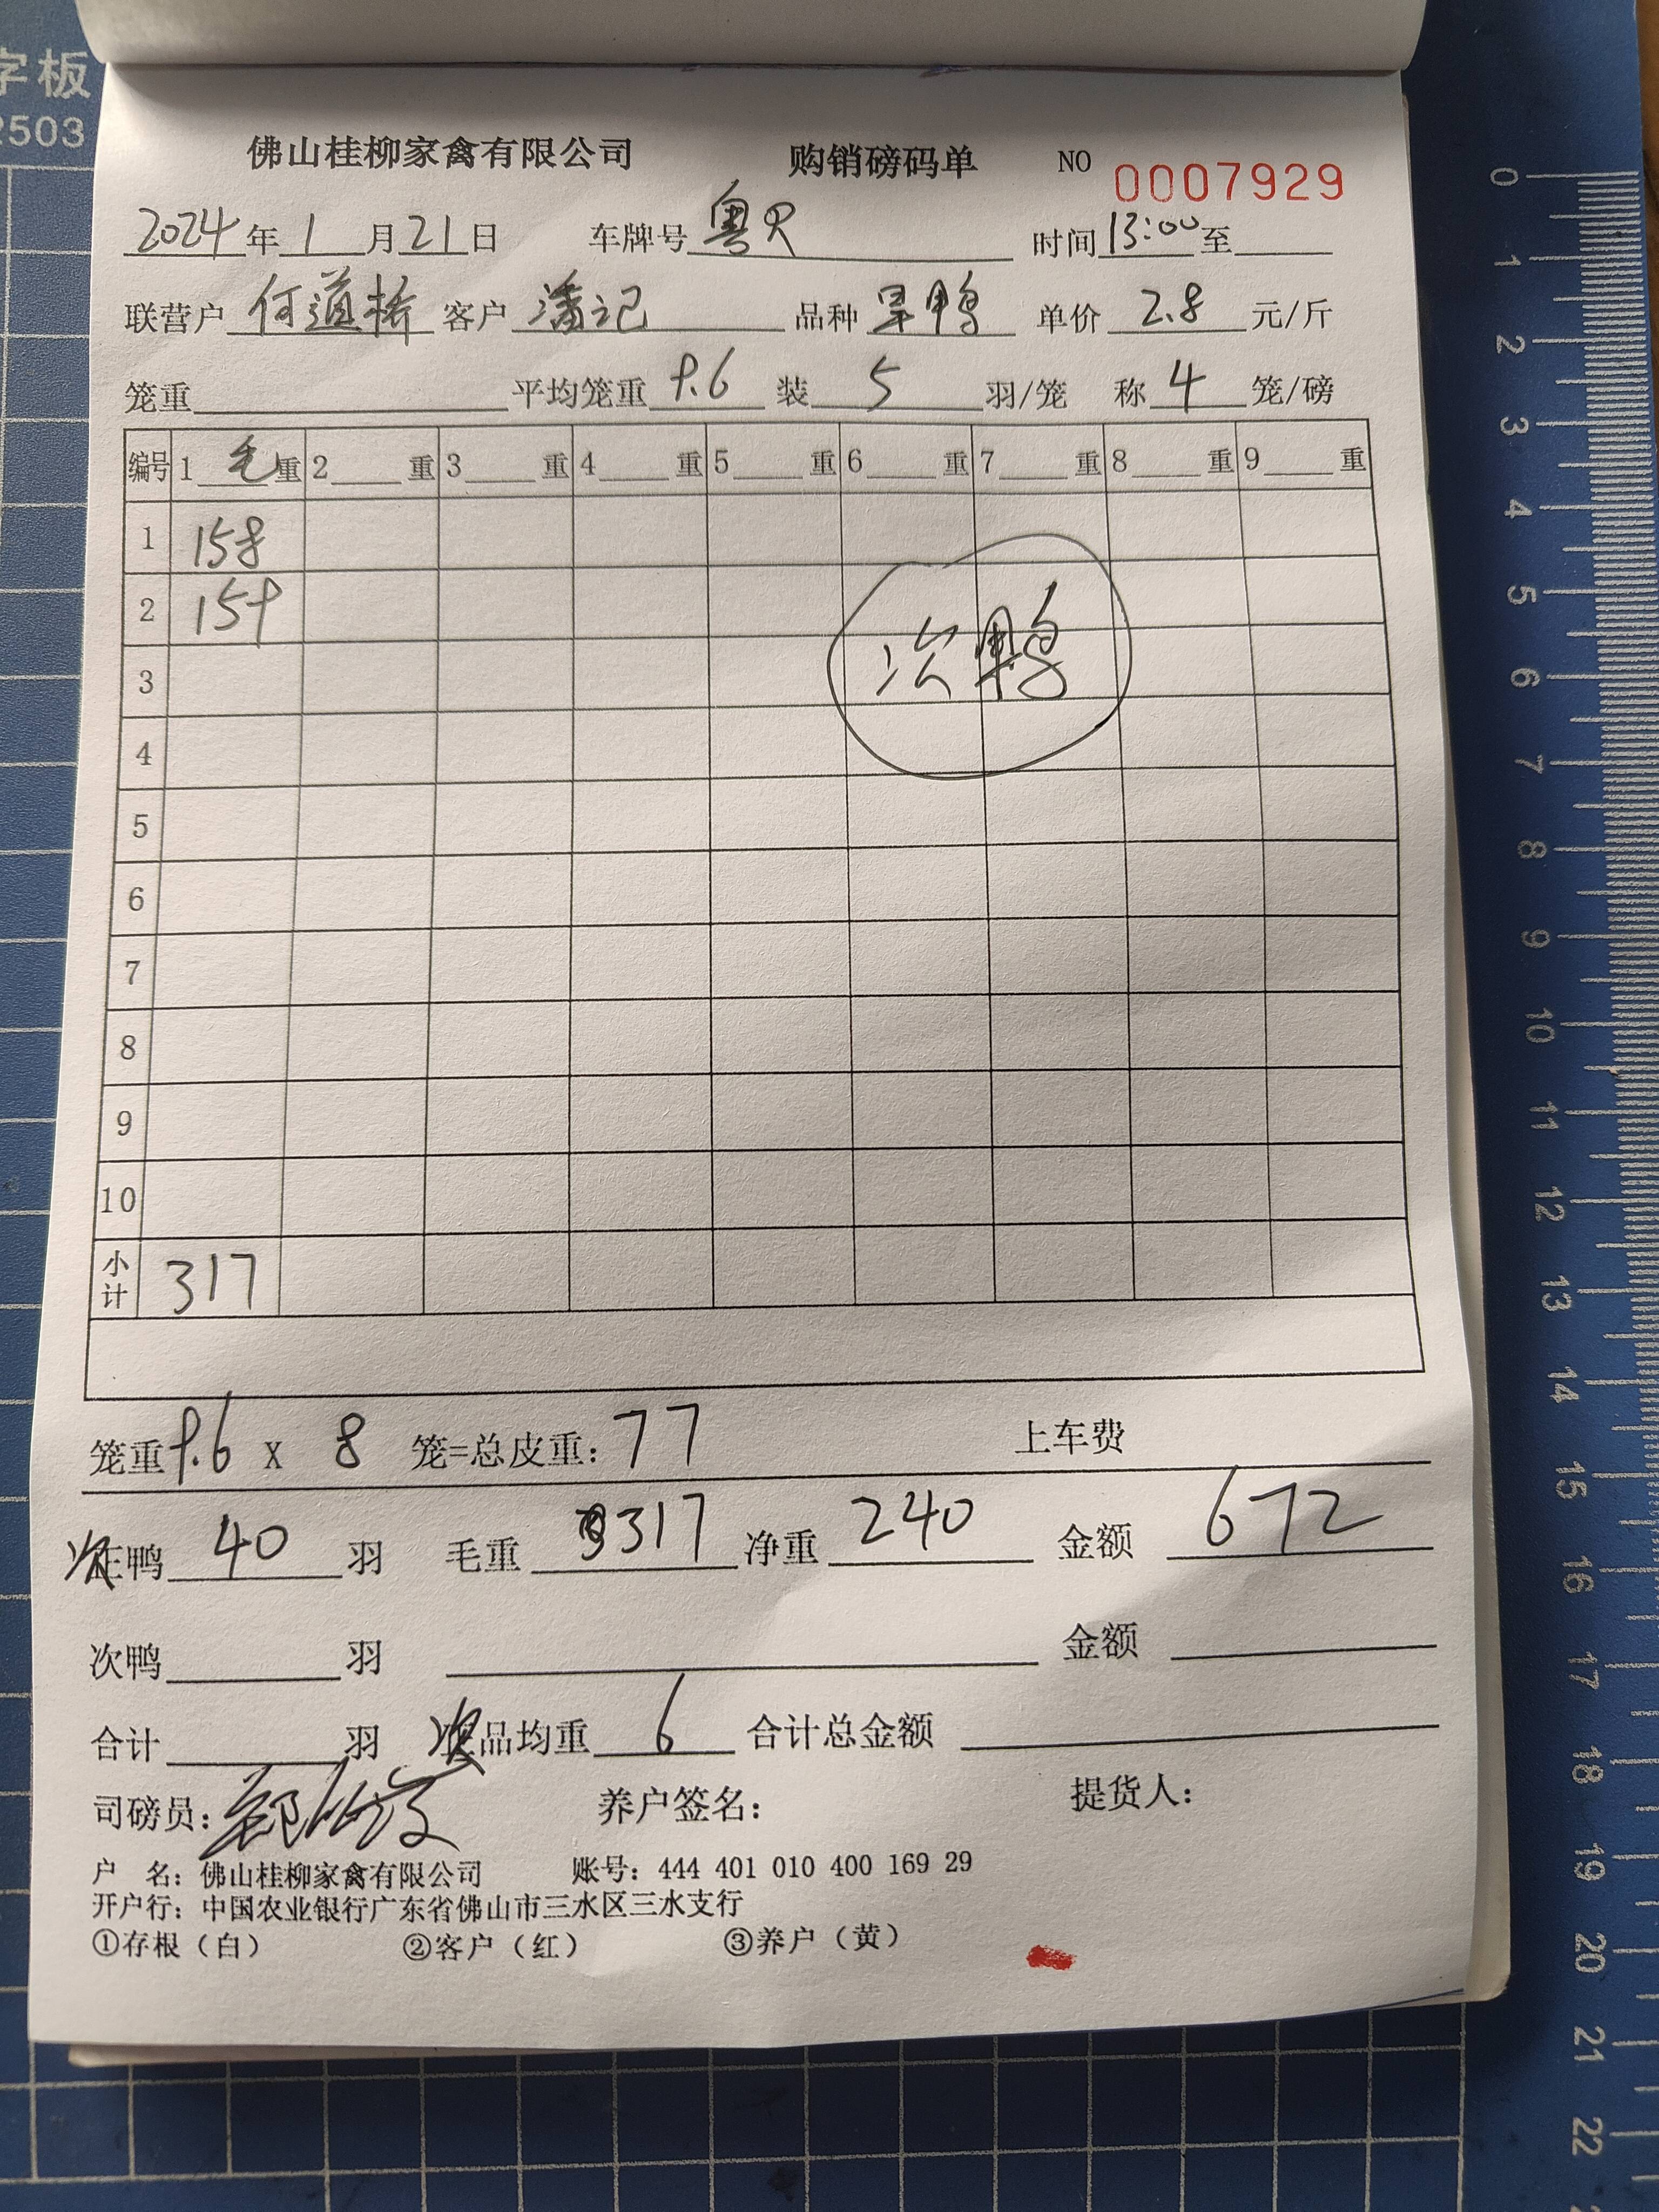 字板
2503
佛山桂柳家禽有限公司 购销磅码单 NO 0007929
2024年1月21日 车牌号 粤R 时间13:00至
联营户 何道桥 客户 潘记 品种 旱鸭 单价 2.8 元/斤
笼重 平均笼重 9.6 装 5 羽/笼 称 4 笼/磅
编号 1 毛重 2 重 3 重 4 重 5 重 6 重 7 重 8 重 9 重
1 158
2 159
3 次鸭
4
5
6
7
8
9
10
小计 317
笼重9.6 X 8 笼=总皮重：77 上车费
次鸭 40 羽 毛重 317 净重 240 金额 672
次鸭 羽 金额
合计 羽 次品均重 6 合计总金额
司磅员： 养户签名： 提货人：
户 名：佛山桂柳家禽有限公司 账号：444 401 010 400 169 29
开户行：中国农业银行广东省佛山市三水区三水支行
①存根（白） ②客户（红） ③养户（黄）
0
1
2
3
4
5
6
7
8
9
10
11
12
13
14
15
16
17
18
19
20
21
22